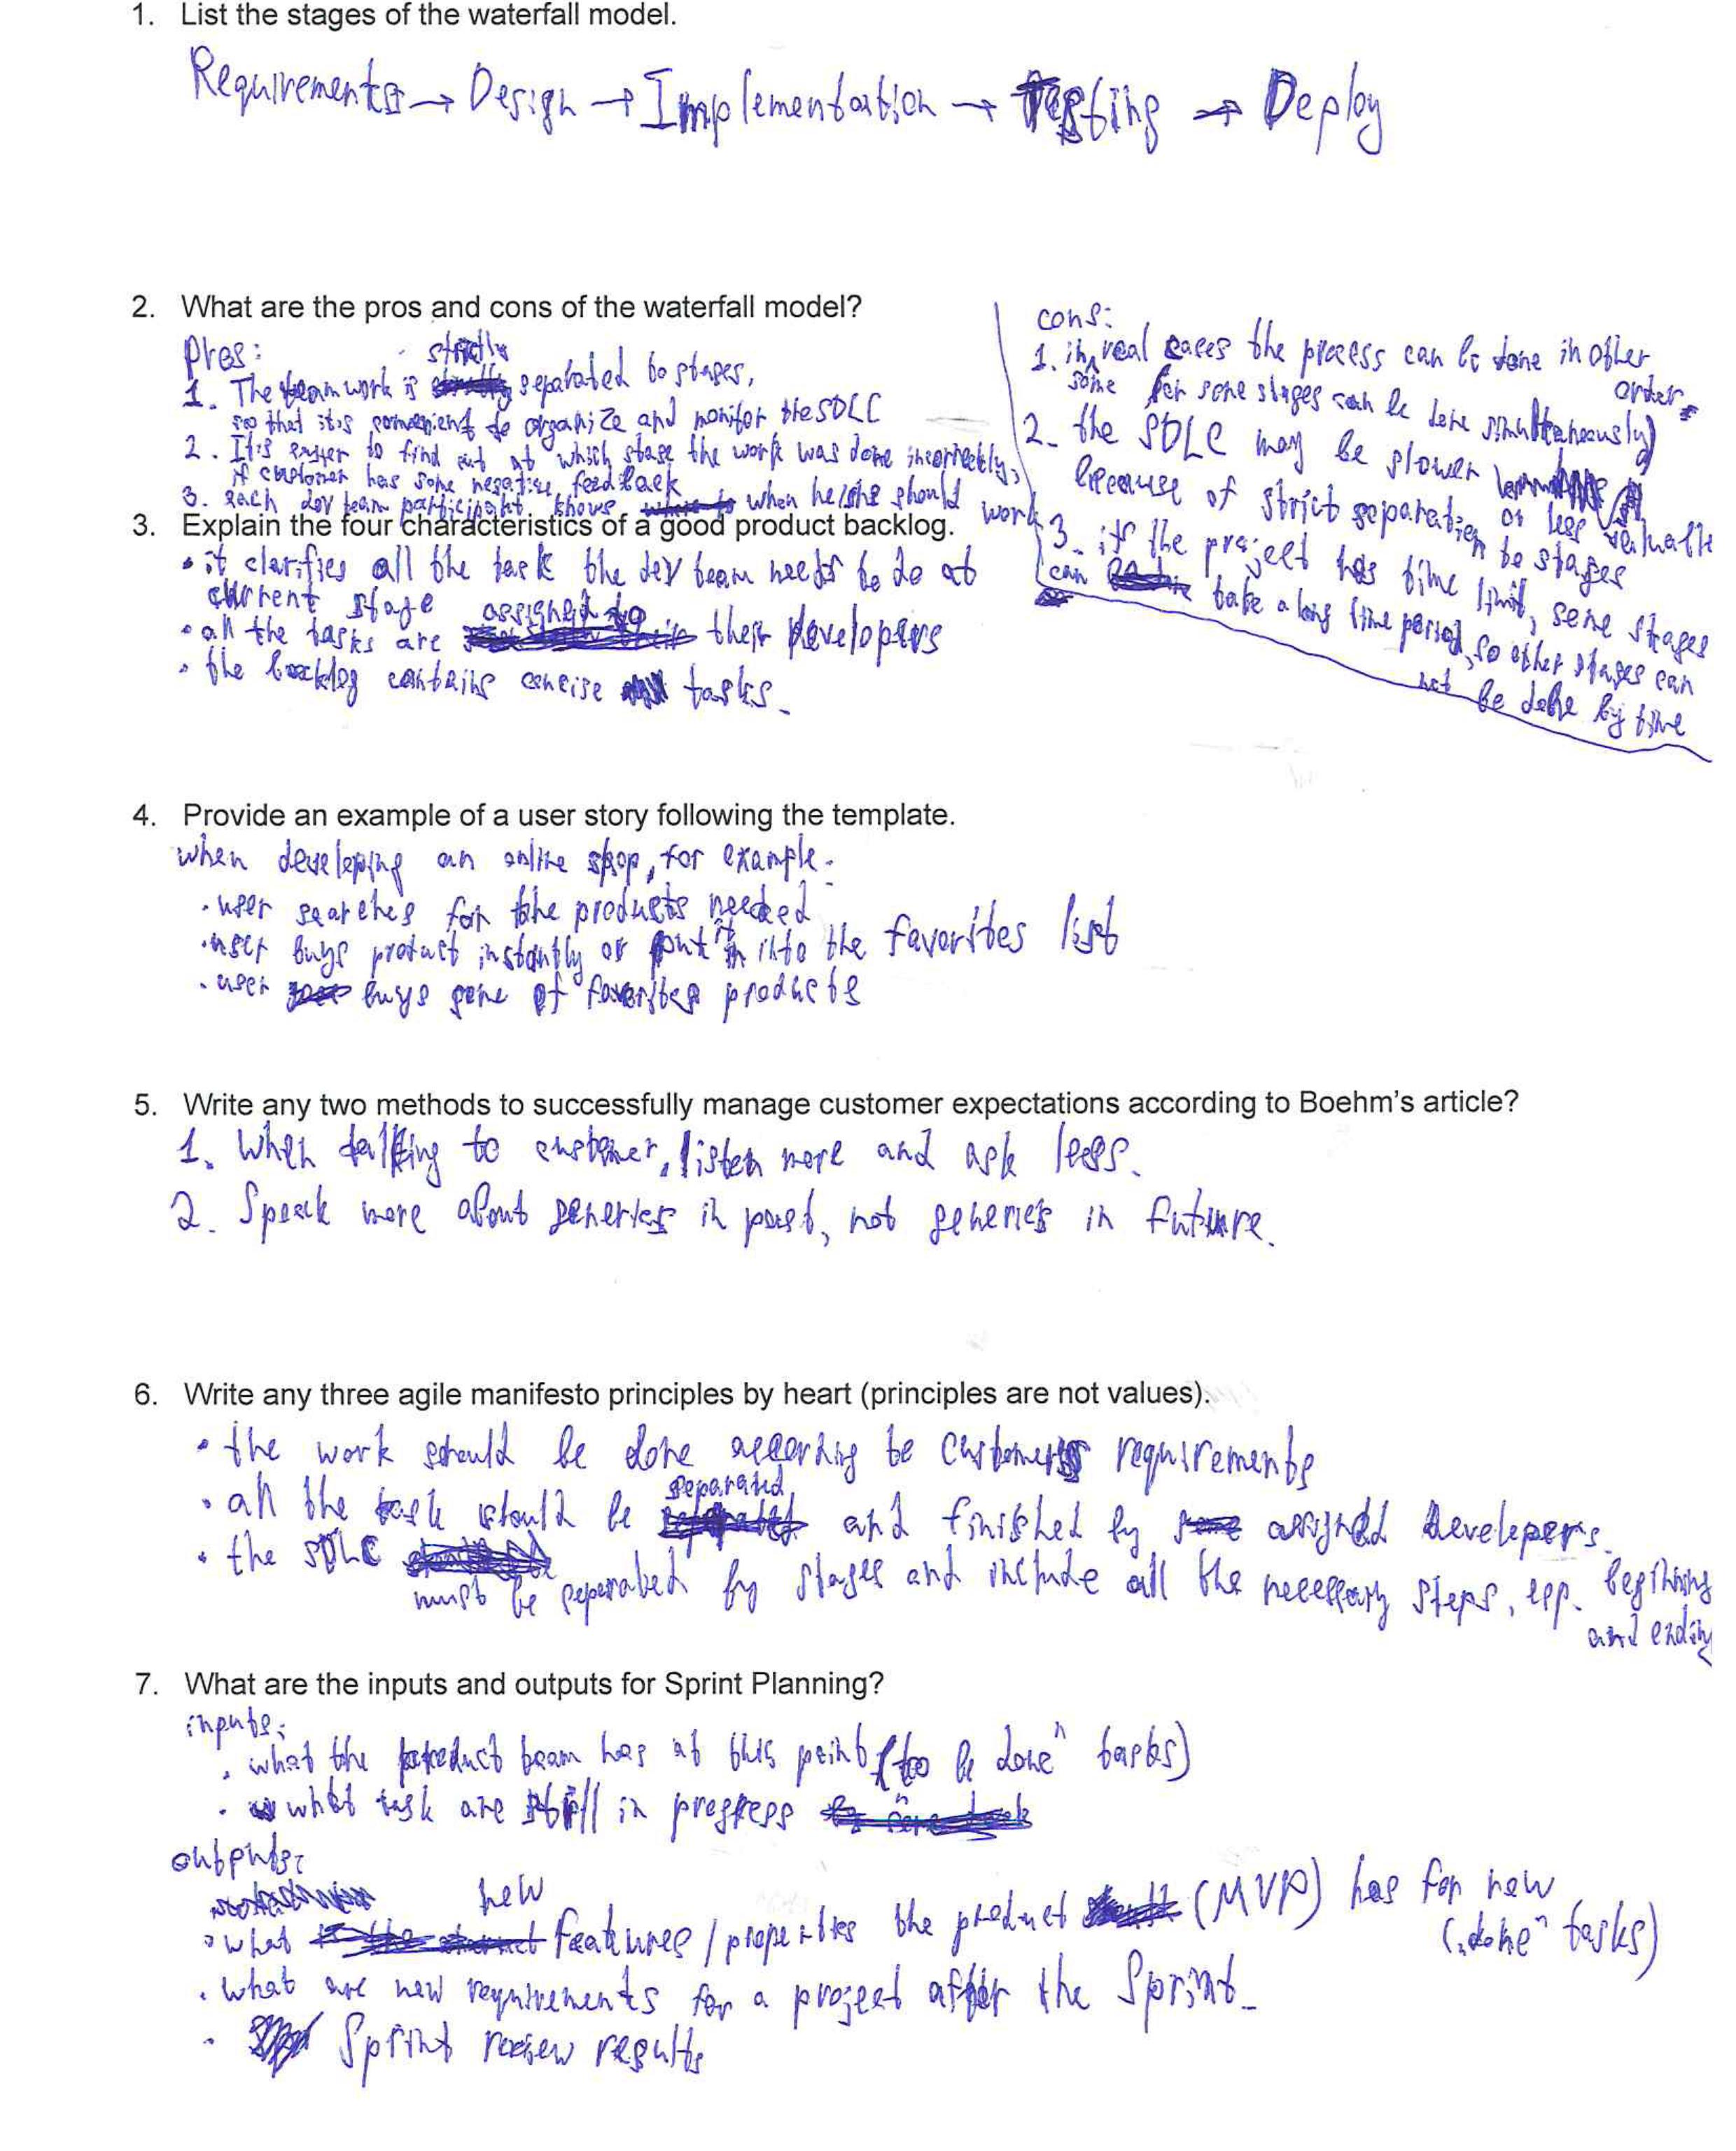 1. List the stages of the waterfall model.
Requirements → Design → Implementation → Testing → Deploy
2. What are the pros and cons of the waterfall model?
pros:
1. The teamwork is strictly separated to stages,
so that it is convenient to organize and monitor the SDLC
2. It is easier to find out at which stage the work was done incorrectly,
if customer has some negative feedback
3. each dev team participant knows when he/she should work
cons:
1. in some real cases the process can be done in other
order
(or some stages can be done simultaneously)
2. the SDLC may be slower or less valuable
because of strict separation to stages
3. if the project has time limit, some stages
can take a long time period, so other stages can
not be done by time
3. Explain the four characteristics of a good product backlog.
• it clarifies all the task the dev team needs to do at
current stage
• all the tasks are assigned to their developers
• the backlog contains concise tasks.
4. Provide an example of a user story following the template.
when developing an online shop, for example:
• user searches for the products needed
• user buys product instantly or put it into the favorites list
• user buys some of favorites products
5. Write any two methods to successfully manage customer expectations according to Boehm's article?
1. When talking to customer, listen more and ask less.
2. Speak more about generics in past, not generics in future.
6. Write any three agile manifesto principles by heart (principles are not values).
• the work should be done according to customer's requirements
• all the task should be separated and finished by assigned developers.
• the SDLC
must be separated by stages and include all the necessary steps, esp. beginning
and ending
7. What are the inputs and outputs for Sprint Planning?
inputs:
• what the product team has at this point ("to be done" tasks)
• what task are still in progress
outputs:
• what new features / properties the product (MVP) has for new
("done" tasks)
• what are new requirements for a project after the Sprint.
• Sprint review results